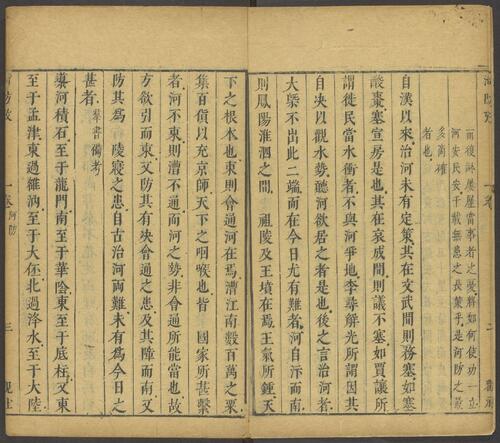 而後淋屢屢當事者之憂將如何使功一立
河安民安千載無患之長策乎是河防之最
多商確
者也
自漢以來治河未有定策其在文武間則務塞如
酸棗塞宣房是也其在哀成間則議不塞如賈讓所
謂徙民當水衝者不與河爭地李尋解光所謂因其
自决以觀水勢聽河欲居之者是也後之言治河者
大槩不出此二端而在今日尤有難者河自汴而南
則鳳陽淮泗之間 祖陵及王墳在焉王氣所鍾天
下之根本也東則會通河在焉漕江南數百萬之粟
集百貨以充京師天下之咽喉也皆 國家所甚繫
者河不東則漕不通而河之勢非會通所能當也故
方欲引而東又防其有决會通之患及其障而南又
防其爲 陵寢之患自古治河兩難未有爲今日之
甚者 羣書備考
導河積石至于龍門南至于華陰東至于底柱又東
至于孟津東過雒汭至于大伾北過洚水至于大陸
一卷 河防
三